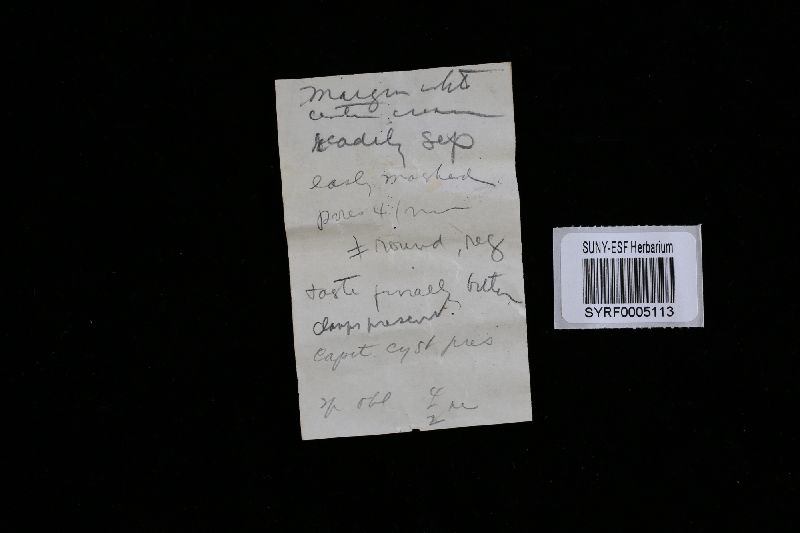 Margin white
center cream
readily sep
easly mashed
pores 4/mm
± round, reg
taste finally bitter
clamps present.
Capit. cyst pres
sp obl 4/2 u
SUNY-ESF Herbarium
SYRF0005113